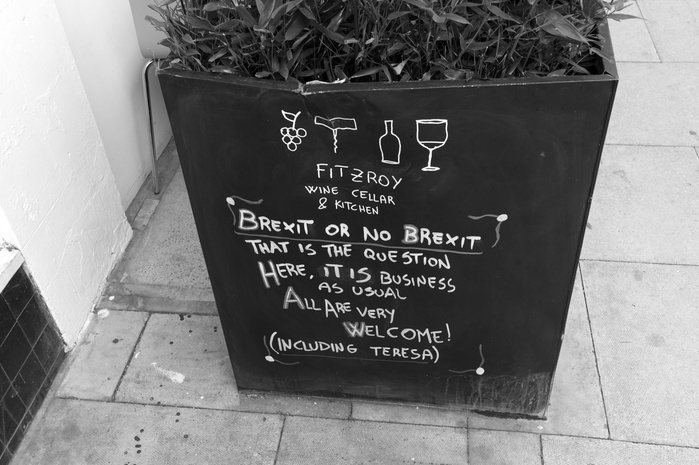 FITZROY
WINE CELLAR
& KITCHEN
BREXIT OR NO BREXIT
THAT IS THE QUESTION
HERE, IT IS BUSINESS
AS USUAL
ALL ARE VERY
WELCOME!
(INCLUDING TERESA)